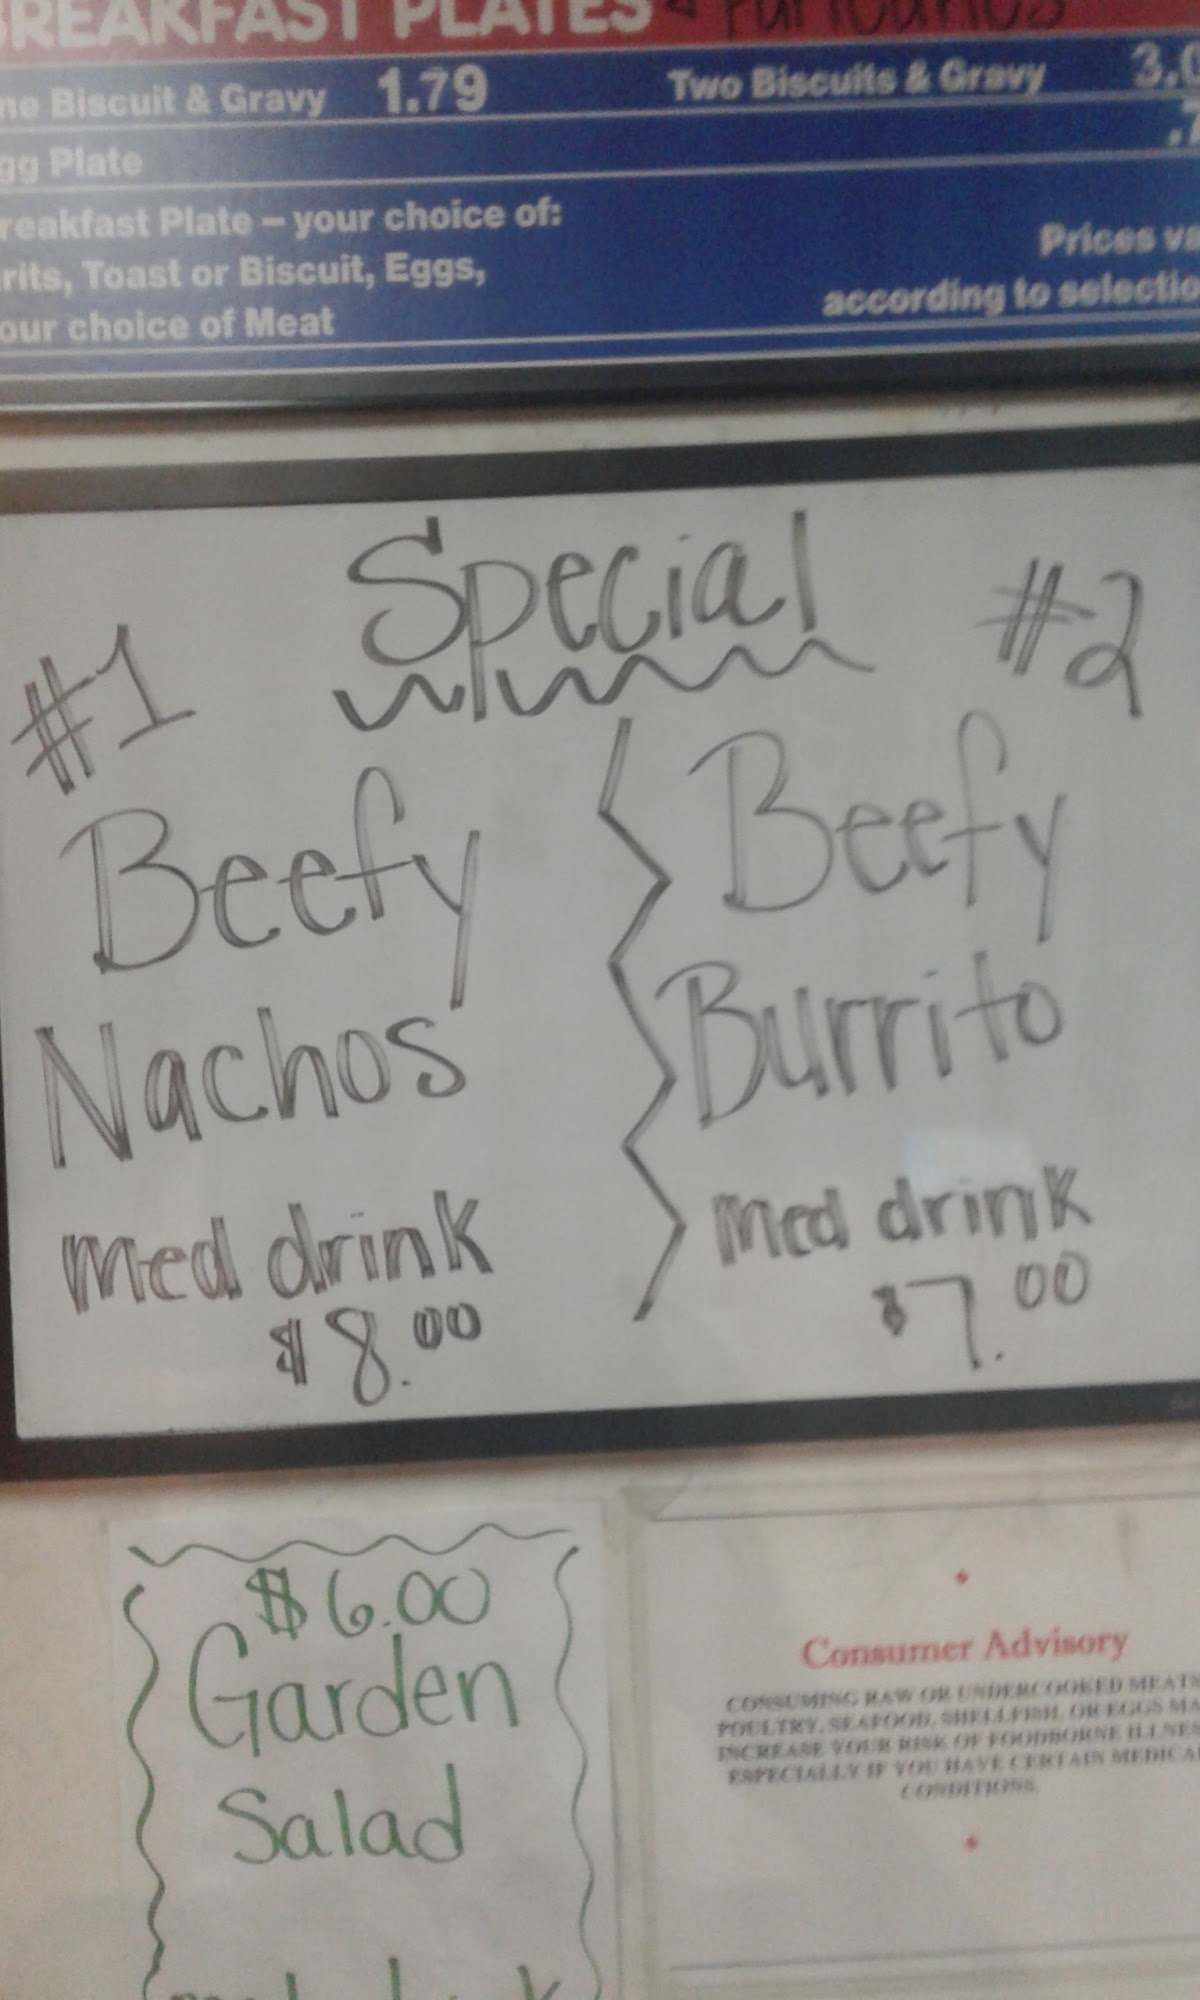 BREAKFAST PLATES
ne Biscuit & Gravy 1.79 Two Biscuits & Gravy 3.0
gg Plate .7
reakfast Plate – your choice of:
rits, Toast or Biscuit, Eggs,
our choice of Meat
Prices va
according to selectio
Special
#1
Beefy
Nachos
med drink
$8.00
#2
Beefy
Burrito
med drink
$7.00
$6.00
Garden
Salad
Consumer Advisory
CONSUMING RAW OR UNDERCOOKED MEATS
POULTRY, SEAFOOD, SHELLFISH, OR EGGS MA
INCREASE YOUR RISK OF FOODBORNE ILLNES
ESPECIALLY IF YOU HAVE CERTAIN MEDICA
CONDITIONS.